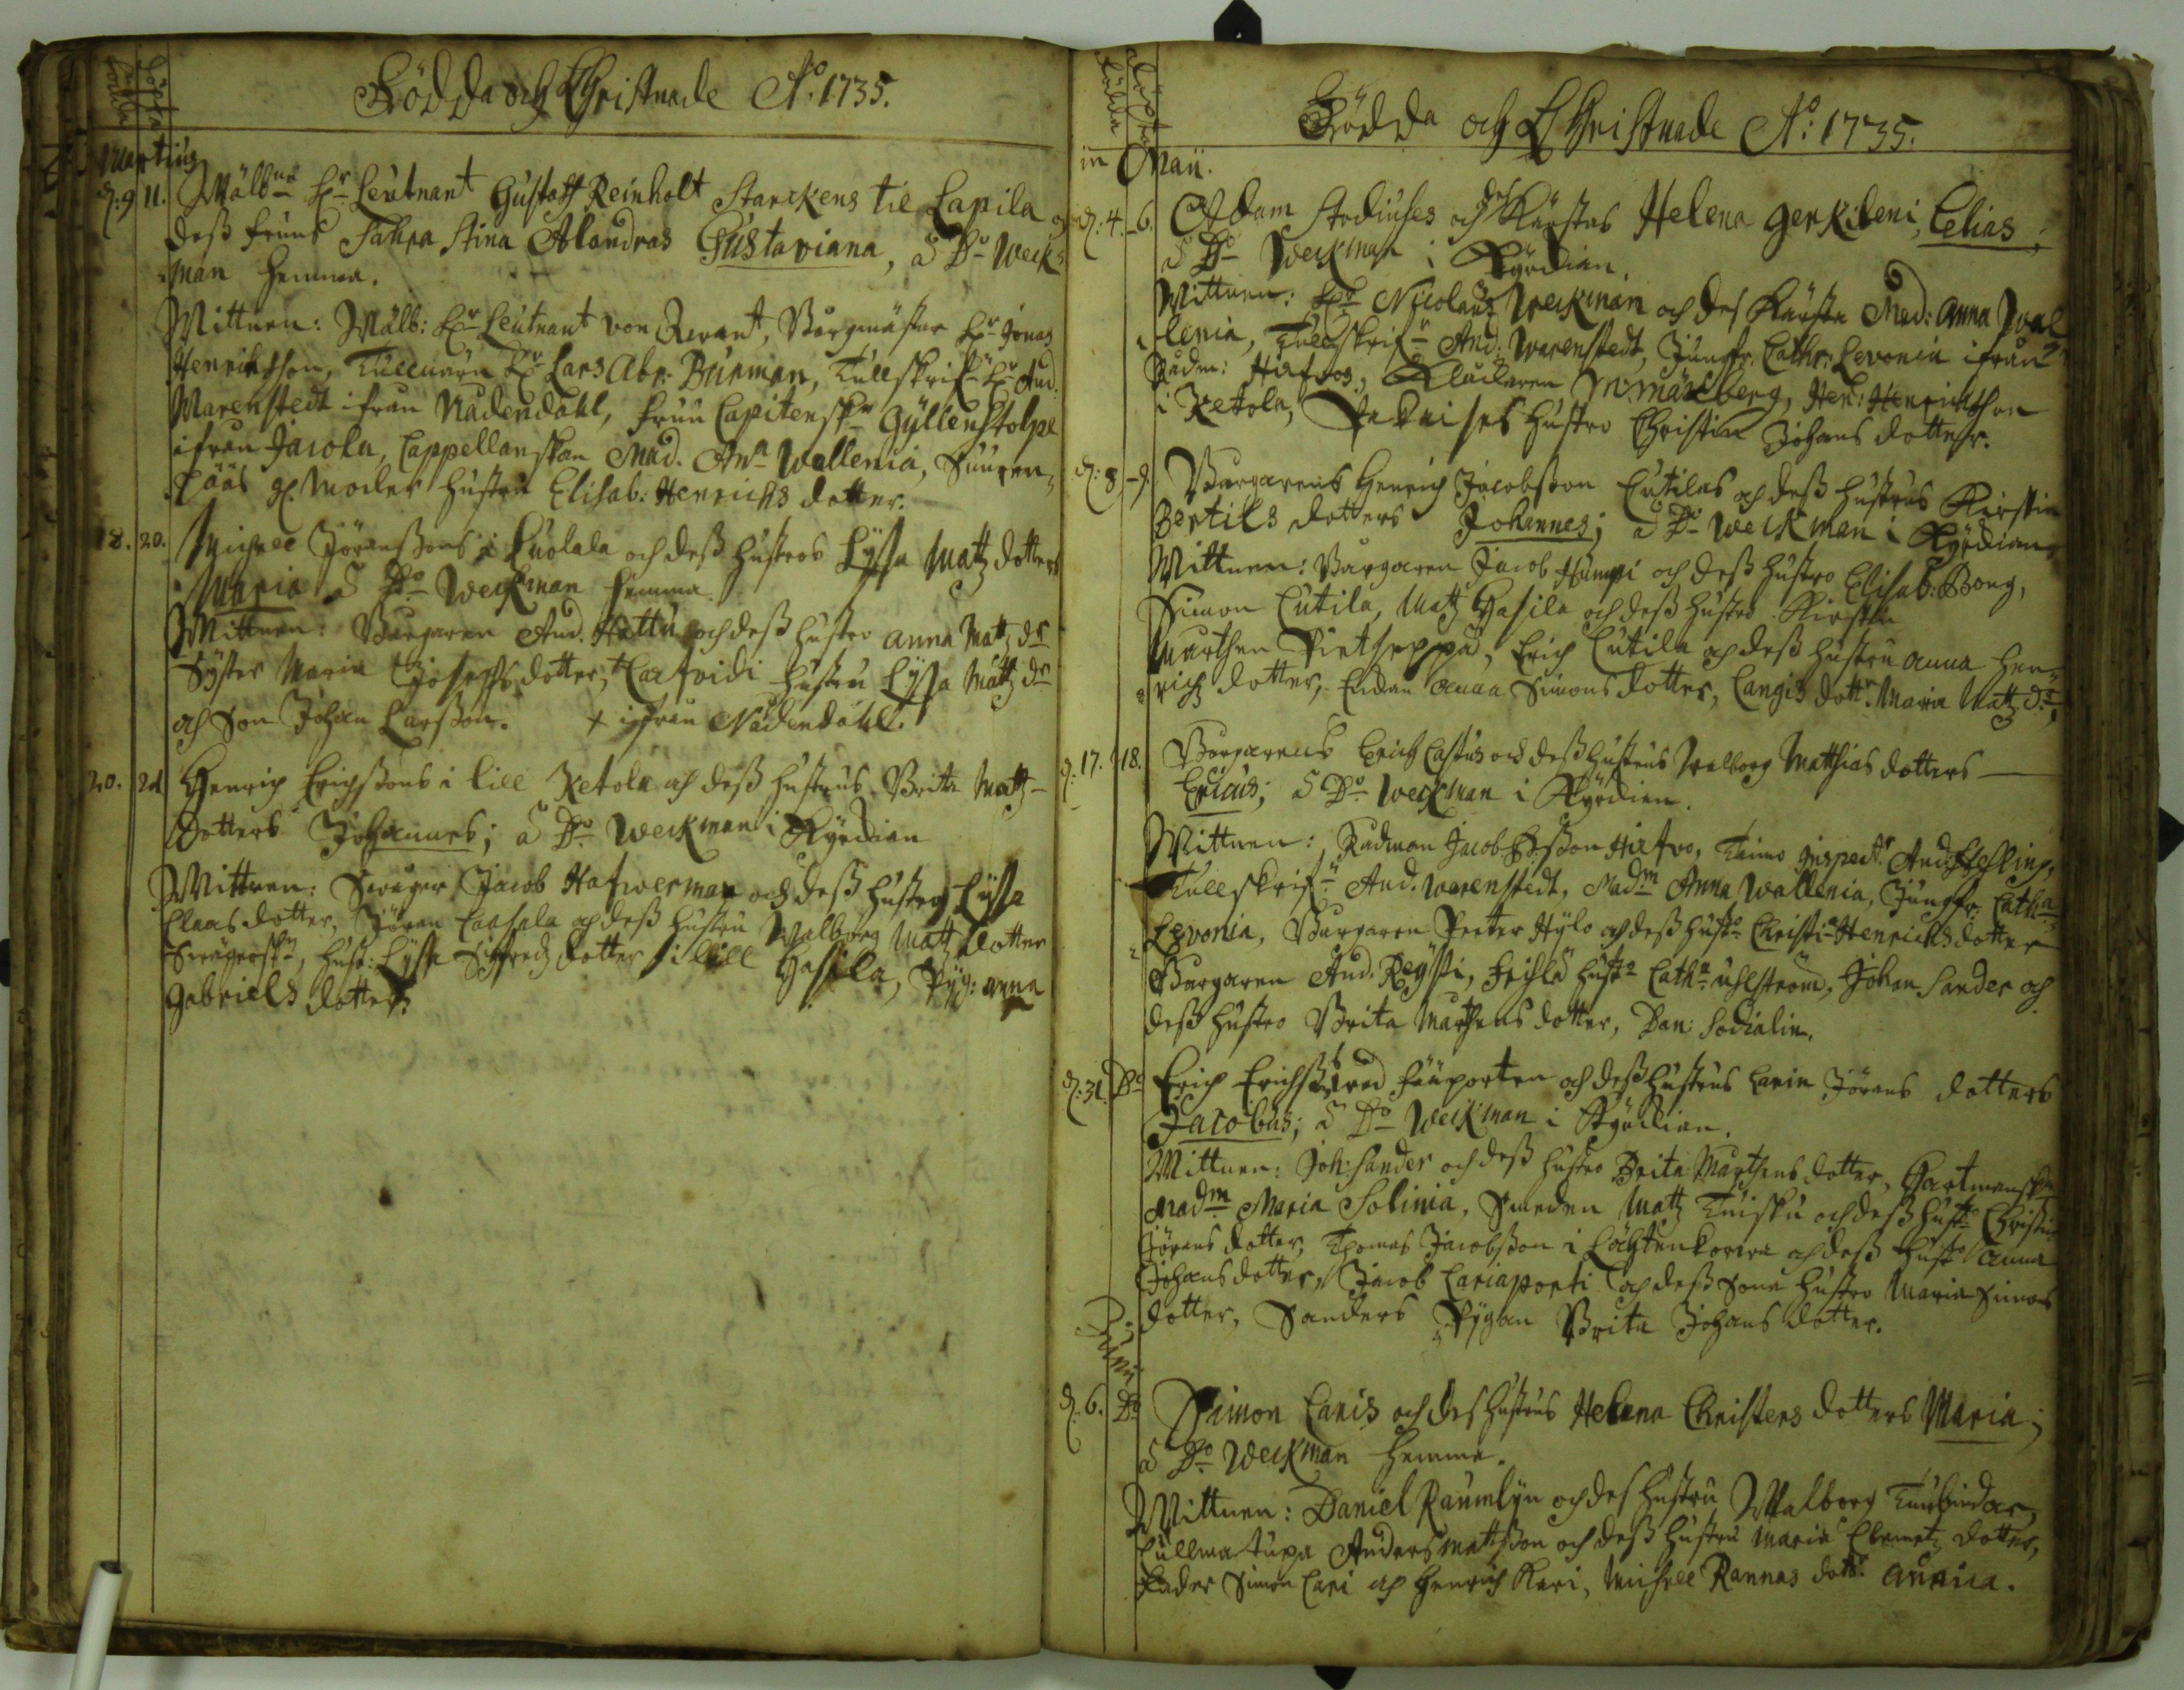 Födda
Döpta
Födda och Christnade A:o 1735.
Martius
d: 9 11. Wälb:ne H:r Leutnant Gustaff Reinholt Starckens til Lapila och
deß fruus Sahra Stina Alandras Gustaviana, à D:o Weck=
=man hemma.
Wittnen: Wälb: H:r Leutnant von Qvant, Borgmästar H:r Jonas
Henrichsson, Tullnärn H:r Lars Abr: Burman, Tullskrif:n H:r And:
Warenstedt ifrån Nådendahl, fruu Capitensk:n Gyllenstolpe
ifrån Jacola, Cappellanskan Mad. An:a Wallenia,
gl. Moder hustru Elisab: Henrichs dotter.
18. 20. Michell Jöranßons i Luolala och deß hustros Lyssa Matz dotters
Maria à D:o Weckman hemma.
Wittnen: Borgaren And. Hattu och deß hustro Anna Matz dr
Syster Maria Josephs dotter, + hustru Lyssa Matz dr
och Son Johan Larsson. + ifrån Nådendahl.
20. 21 Henrich Erichssons i lill Ketola och deß hustrus Brita Matz-
dotters Johannes; à D:o Weckman i Kyrckian
Wittnen: Swåger Jacob Hafwerman och deß hustru Lyssa
Claas dotter, Jöran Casala och deß hustru Walborg Matz dotter
Swägersk:n, hust: Lyssa Sigfreds dotter i lill Hasila, Pyg: Anna
Gabriels dotter.
Födda
Döpta
Födda och Christnade A:o 1735.
in Maii.
d: 4. 6. Adam och des Kärstas Helena Gerkileni, Elias;
à D:o Weckman i Kyrckian.
Wittnen: H:r Nicolaus Weckman och des Kärsta Mad: Anna Wal=
=lenia, Tullskrif:n And: Warenstedt, Jungfr. Cathr: Levonia ifrån
Rådm: Hirfvos, Klåckaren M: Mårtberg, Hen: Henrichsson
i Ketola, hustro Christin Johans dotter.
d: 8. 9. Borgarens Henrich Jacobsson Cutilas och deß hustrus Kirstin
Bertils dotters Johannes; à D:o Weckman i Kyrckian.
Wittnen: Borgaren Jacob Humpi och deß hustro Elisab: Bong,
Simon Cutila, Matz Hasila och deß hustro Kirstin
Marthen Pietseppä, Erich Cutila och deß hustru Anna Hen=
=richs dotter, Enckan Anna Simons dotter, Langis dott:r Maria Matz d:r,
d: 17. 18. Borgarens Erich Castus och deß hustrus Walborg Matthias dotters
Ericus; à D:o Weckman i Kyrckian.
Wittnen: Rådman Jacob Hirfvo, Inspect:r And: Hesling,
Tullskrif:n And. Warenstedt, Mad:m Anna Wallenia, Jungfr: Catha:
Levonia, Borgaren Petter Hylo och deß hust:o Christi:a Henrichs dotter
Borgaren And. Reysti, hust:o Cath:a Uhlström, Johan Sander och
deß hustro Brita Marthens dotter, Dan: Sodialin.
d: 31. D:o Erich Erichssons wed och deß hustrus Carin Jörans dotters
Jacobus; à D:o Weckman i Kyrckian.
Wittnen: Joh: Sander och deß hustro Brita Marthens dotter, Hartmansk:n
Mad:m Maria Solinia, Smeden Matz Tuisku och deß hust:o Christin
Jörans dotter, Thomas Jacobsson i och deß hust:o Anna
Johans dotter, Jacob Cariaporti och deß Sons hustro Maria Simons
dotter, Sanders Pygan Brita Johans dotter.
Junii
d: 6. D:o Simon Caris och des hustrus Helena Christers dotters Maria;
à D:o Weckman hemma.
Wittnen: Daniel Raumlyn och des hustru Walborg
Cullmatupa Anders Mattsson och deß hustru Maria Clemetz dotter,
Fader Simon Cari och Henrich Kari, Michell Rannas dott:r Annica.